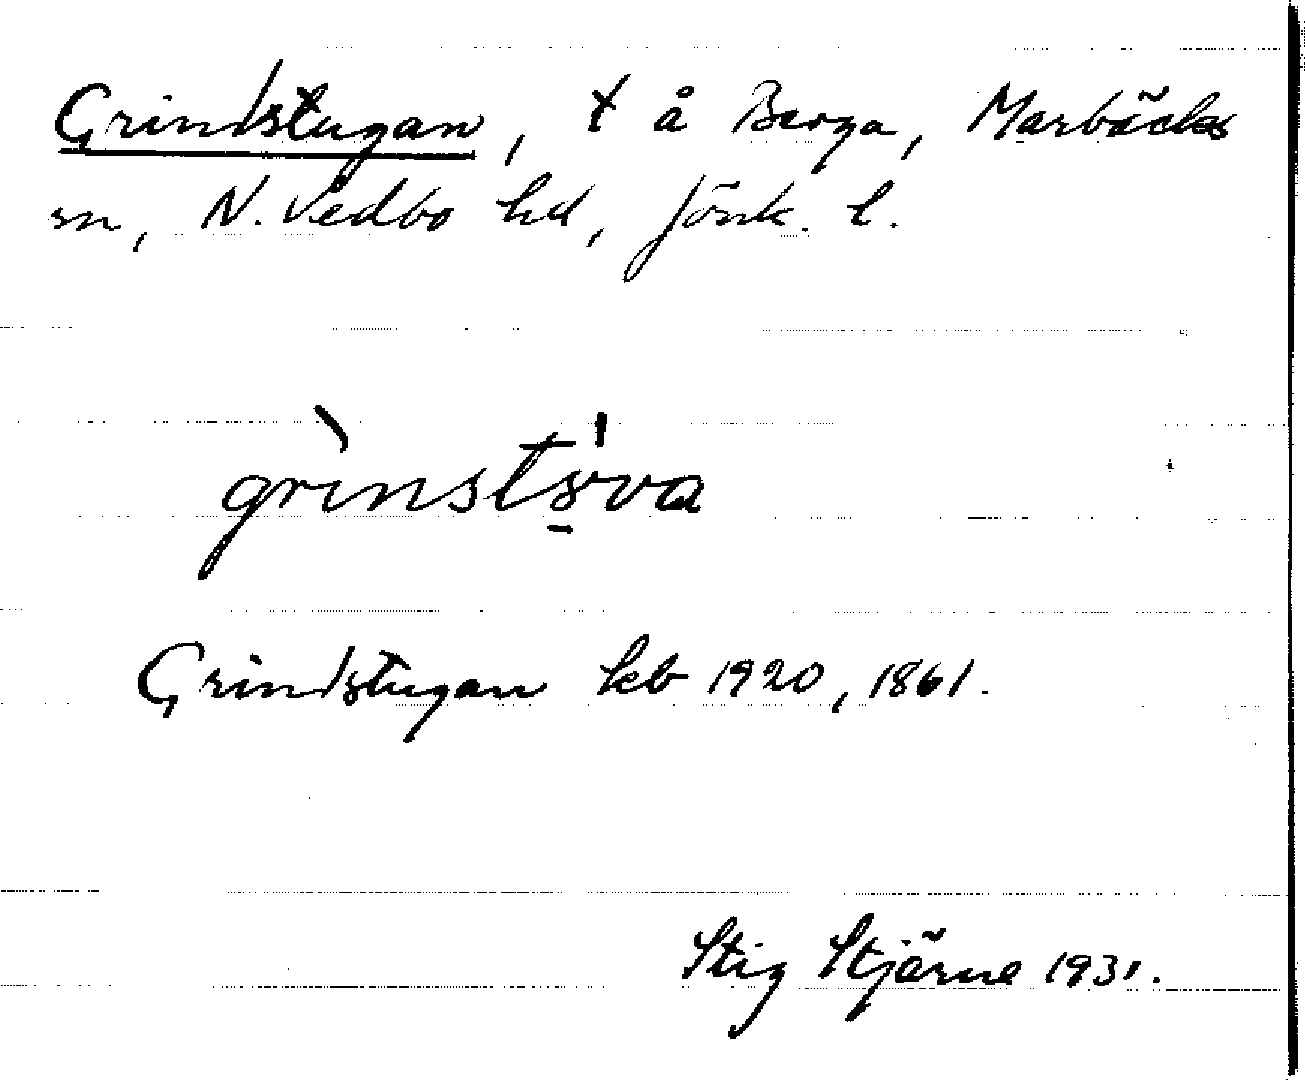 Grindstugan, t å Berga, Marbäcks
sn, N. Vedbo hd, Jönk. l.
grinstva
Grindstugan kb 1920, 1861.
Stig Stjärne 1931.